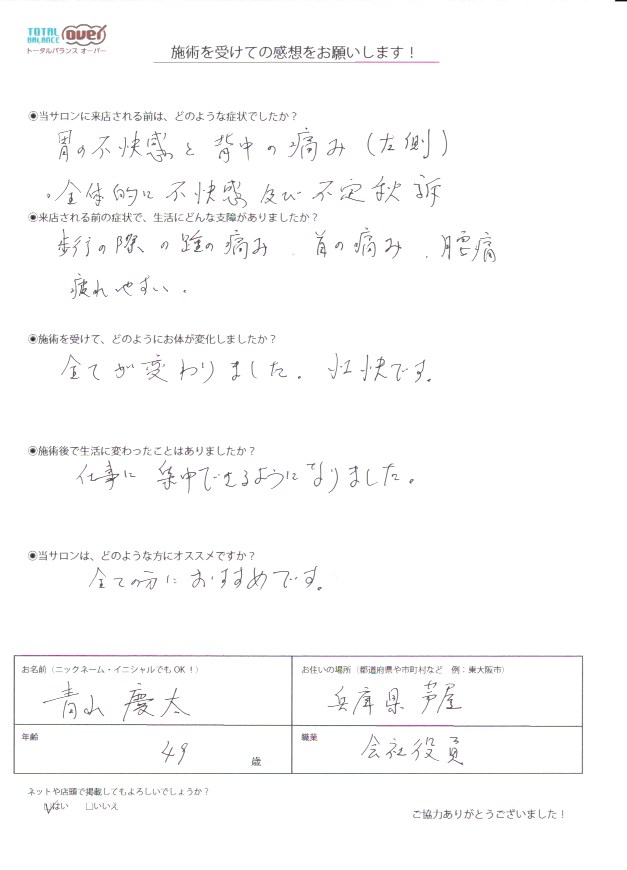 TOTAL BALANCE Over
トータルバランス オーバー
施術を受けての感想をお願いします！
◉当サロンに来店される前は、どのような症状でしたか？
胃の不快感と背中の痛み（左側）
・全体的に不快感及び不定秋訴
◉来店される前の症状で、生活にどんな支障がありましたか？
歩行の際の踵の痛み、首の痛み、腰痛
疲れやすい。
◉施術を受けて、どのようにお体が変化しましたか？
全てが変わりました。快です。
◉施術後で生活に変わったことはありましたか？
仕事に集中できるようになりました。
◉当サロンは、どのような方にオススメですか？
全ての方におすすめです。
お名前（ニックネーム・イニシャルでもOK！）
青山 慶太
お住いの場所（都道府県や市町村など　例：東大阪市）
兵庫県 芦屋
年齢
49 歳
職業
会社役員
ネットや店頭で掲載してもよろしいでしょうか？
☑はい　□いいえ
ご協力ありがとうございました！